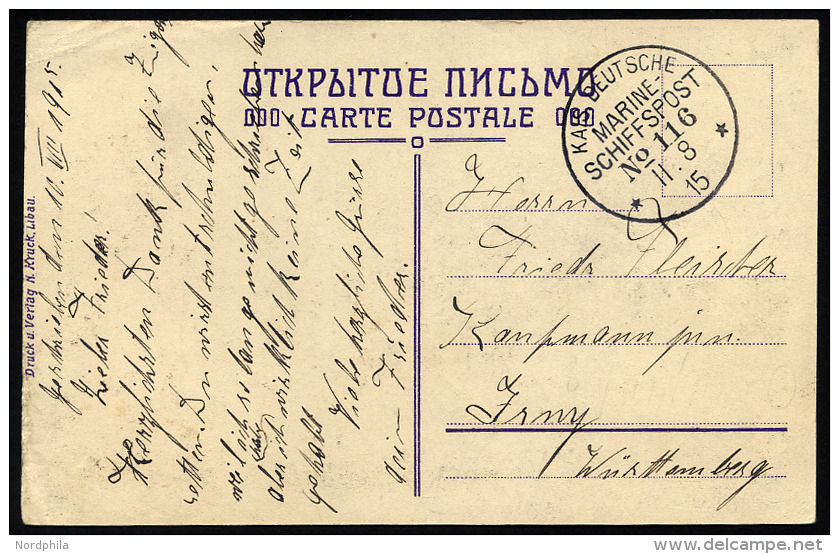 ОТКРЫТОЕ ПИСЬМО
CARTE POSTALE
KAIS. DEUTSCHE
MARINE-
SCHIFFSPOST
No 116
11. 8
15
Herrn
Friedr Fleischer
Kaufmann jun.
Württemberg
Druck u. Verlag N. Kruck, Libau.
Geschrieben den 10. VIII 1915.
Lieber Frieder!
Herzlichsten Dank für die
Du wirst entschuldigen,
weil ich so lange nicht geschrieben
aber ich wirklich keine Zeit
gehabt
Viele herzliche Grüsse
dein Frieder.
Nordphila
delcampe.net